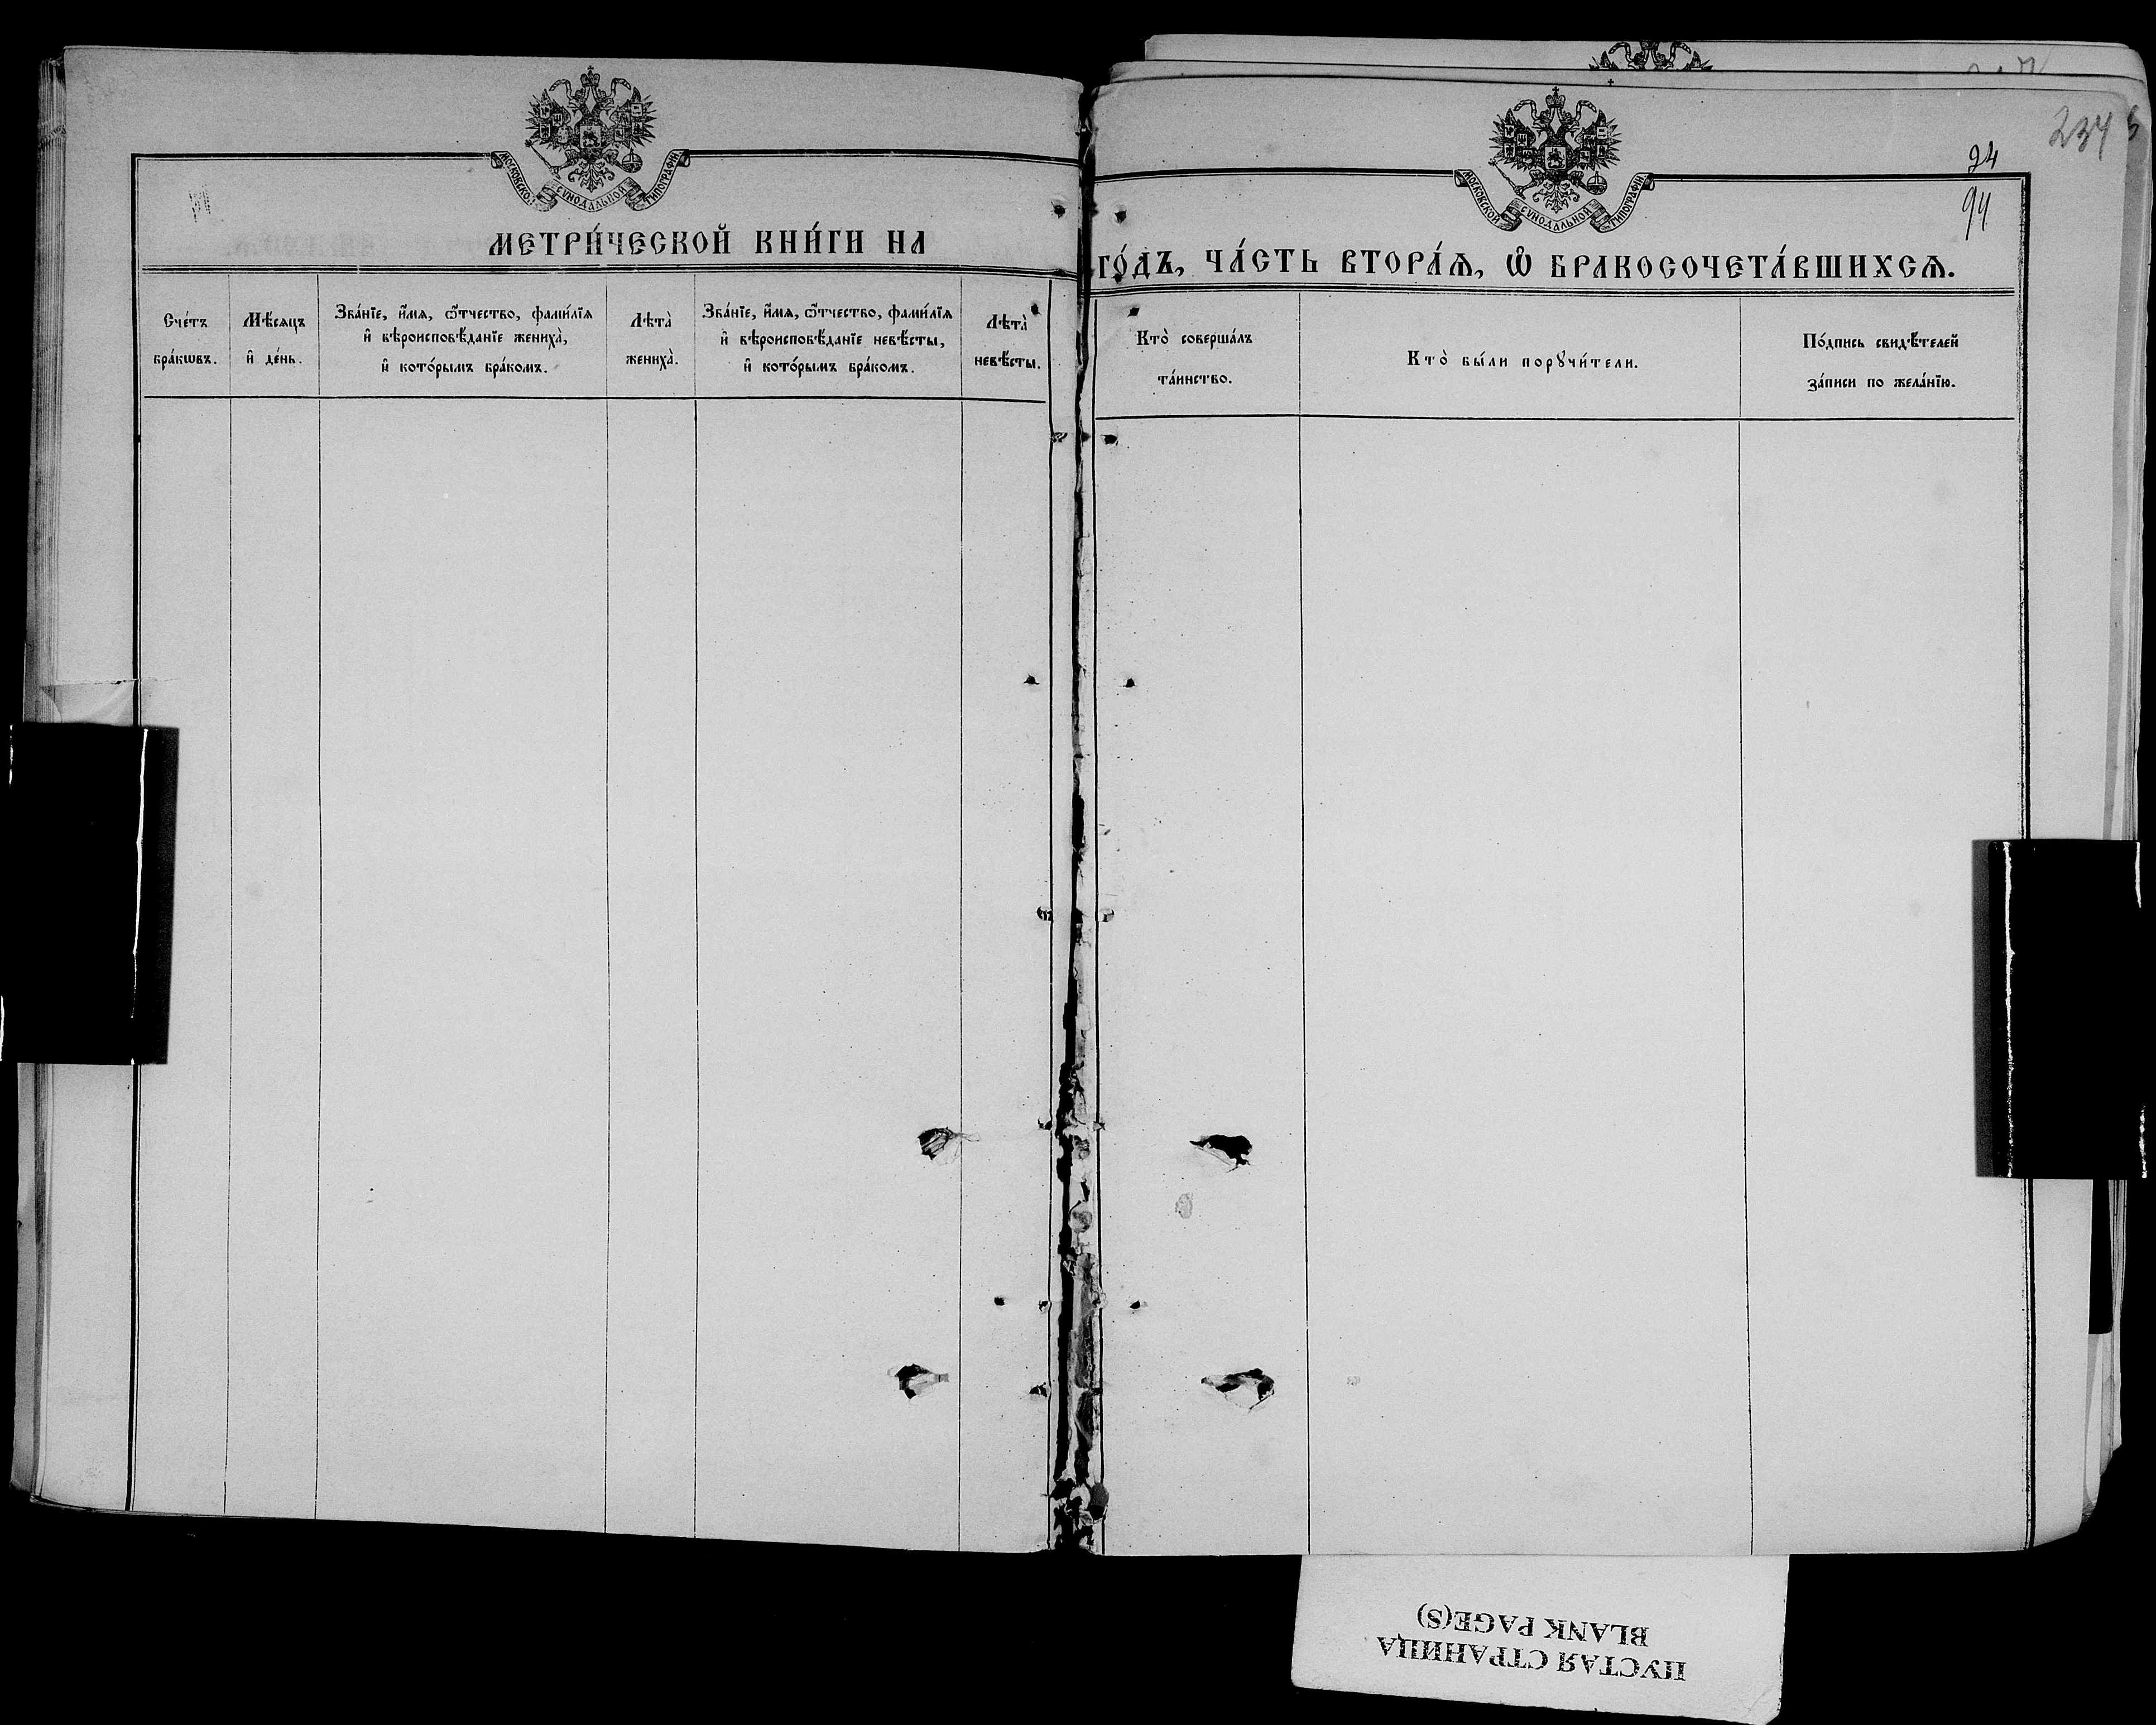 МОСКОВСКОЙ СѴНОДАЛЬНОЙ ТИПОГРАФІИ
МЕТРИ́ЧЕСКОЙ КНИ́ГИ НА
Сче́тъ
бра́кѡвъ.
Мѣ́сяцъ
и҆ де́нь.
Зва́нїе, и҆́мѧ, ѻ҆́тчество, фами́лїѧ
и҆ вѣроисповѣ́данїе женихà,
и҆ кото́рымъ бра́комъ.
Лѣтà
женихà.
Зва́нїе, и҆́мѧ, ѻ҆́тчество, фами́лїѧ
и҆ вѣроисповѣ́данїе невѣ́сты,
и҆ кото́рымъ бра́комъ.
Лѣтà
невѣ́сты.
234
94
94
МОСКОВСКОЙ СѴНОДАЛЬНОЙ ТИПОГРАФІИ
ГО́ДЪ, ЧА́СТЬ ВТОРА́Ѧ, Ѽ БРАКОСОЧЕТА́ВШИХСѦ.
Кто̀ соверша́лъ
та́инство.
Кто̀ бы́ли порꙋчи́тели.
По́дпись свидѣ́телей
за́писи по жела́нїю.
ПУСТАЯ СТРАНИЦА
BLANK PAGE(S)